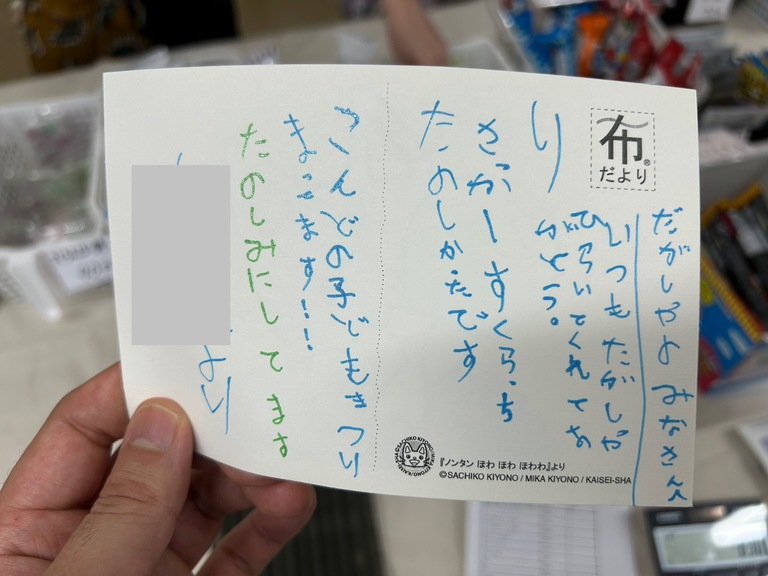 布®
だより
だがしやよ みなさんへ
いつもだがしや
ひらいてくれてあ
り
がとう。
さがーすくらっち
たのしかったです
こんどの子どもまつり
まこます!!
たのしみにしてます
より
『ノンタン ほわ ほわ ほわわ』より
©SACHIKO KIYONO / MIKA KIYONO / KAISEI-SHA